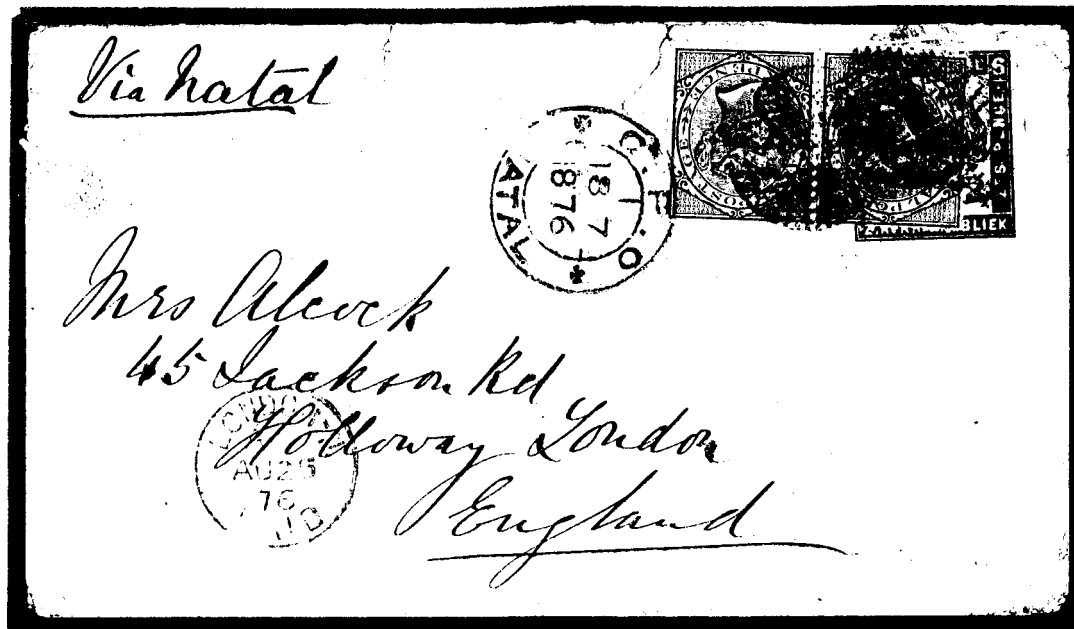 Via Natal
G. P. O
18 7
1876
NATAL
POSTAGE
PENCE
BLIEK
Mrs Alcock
45 Jackson Rd
Holloway London
England
LONDON
AU 25
76